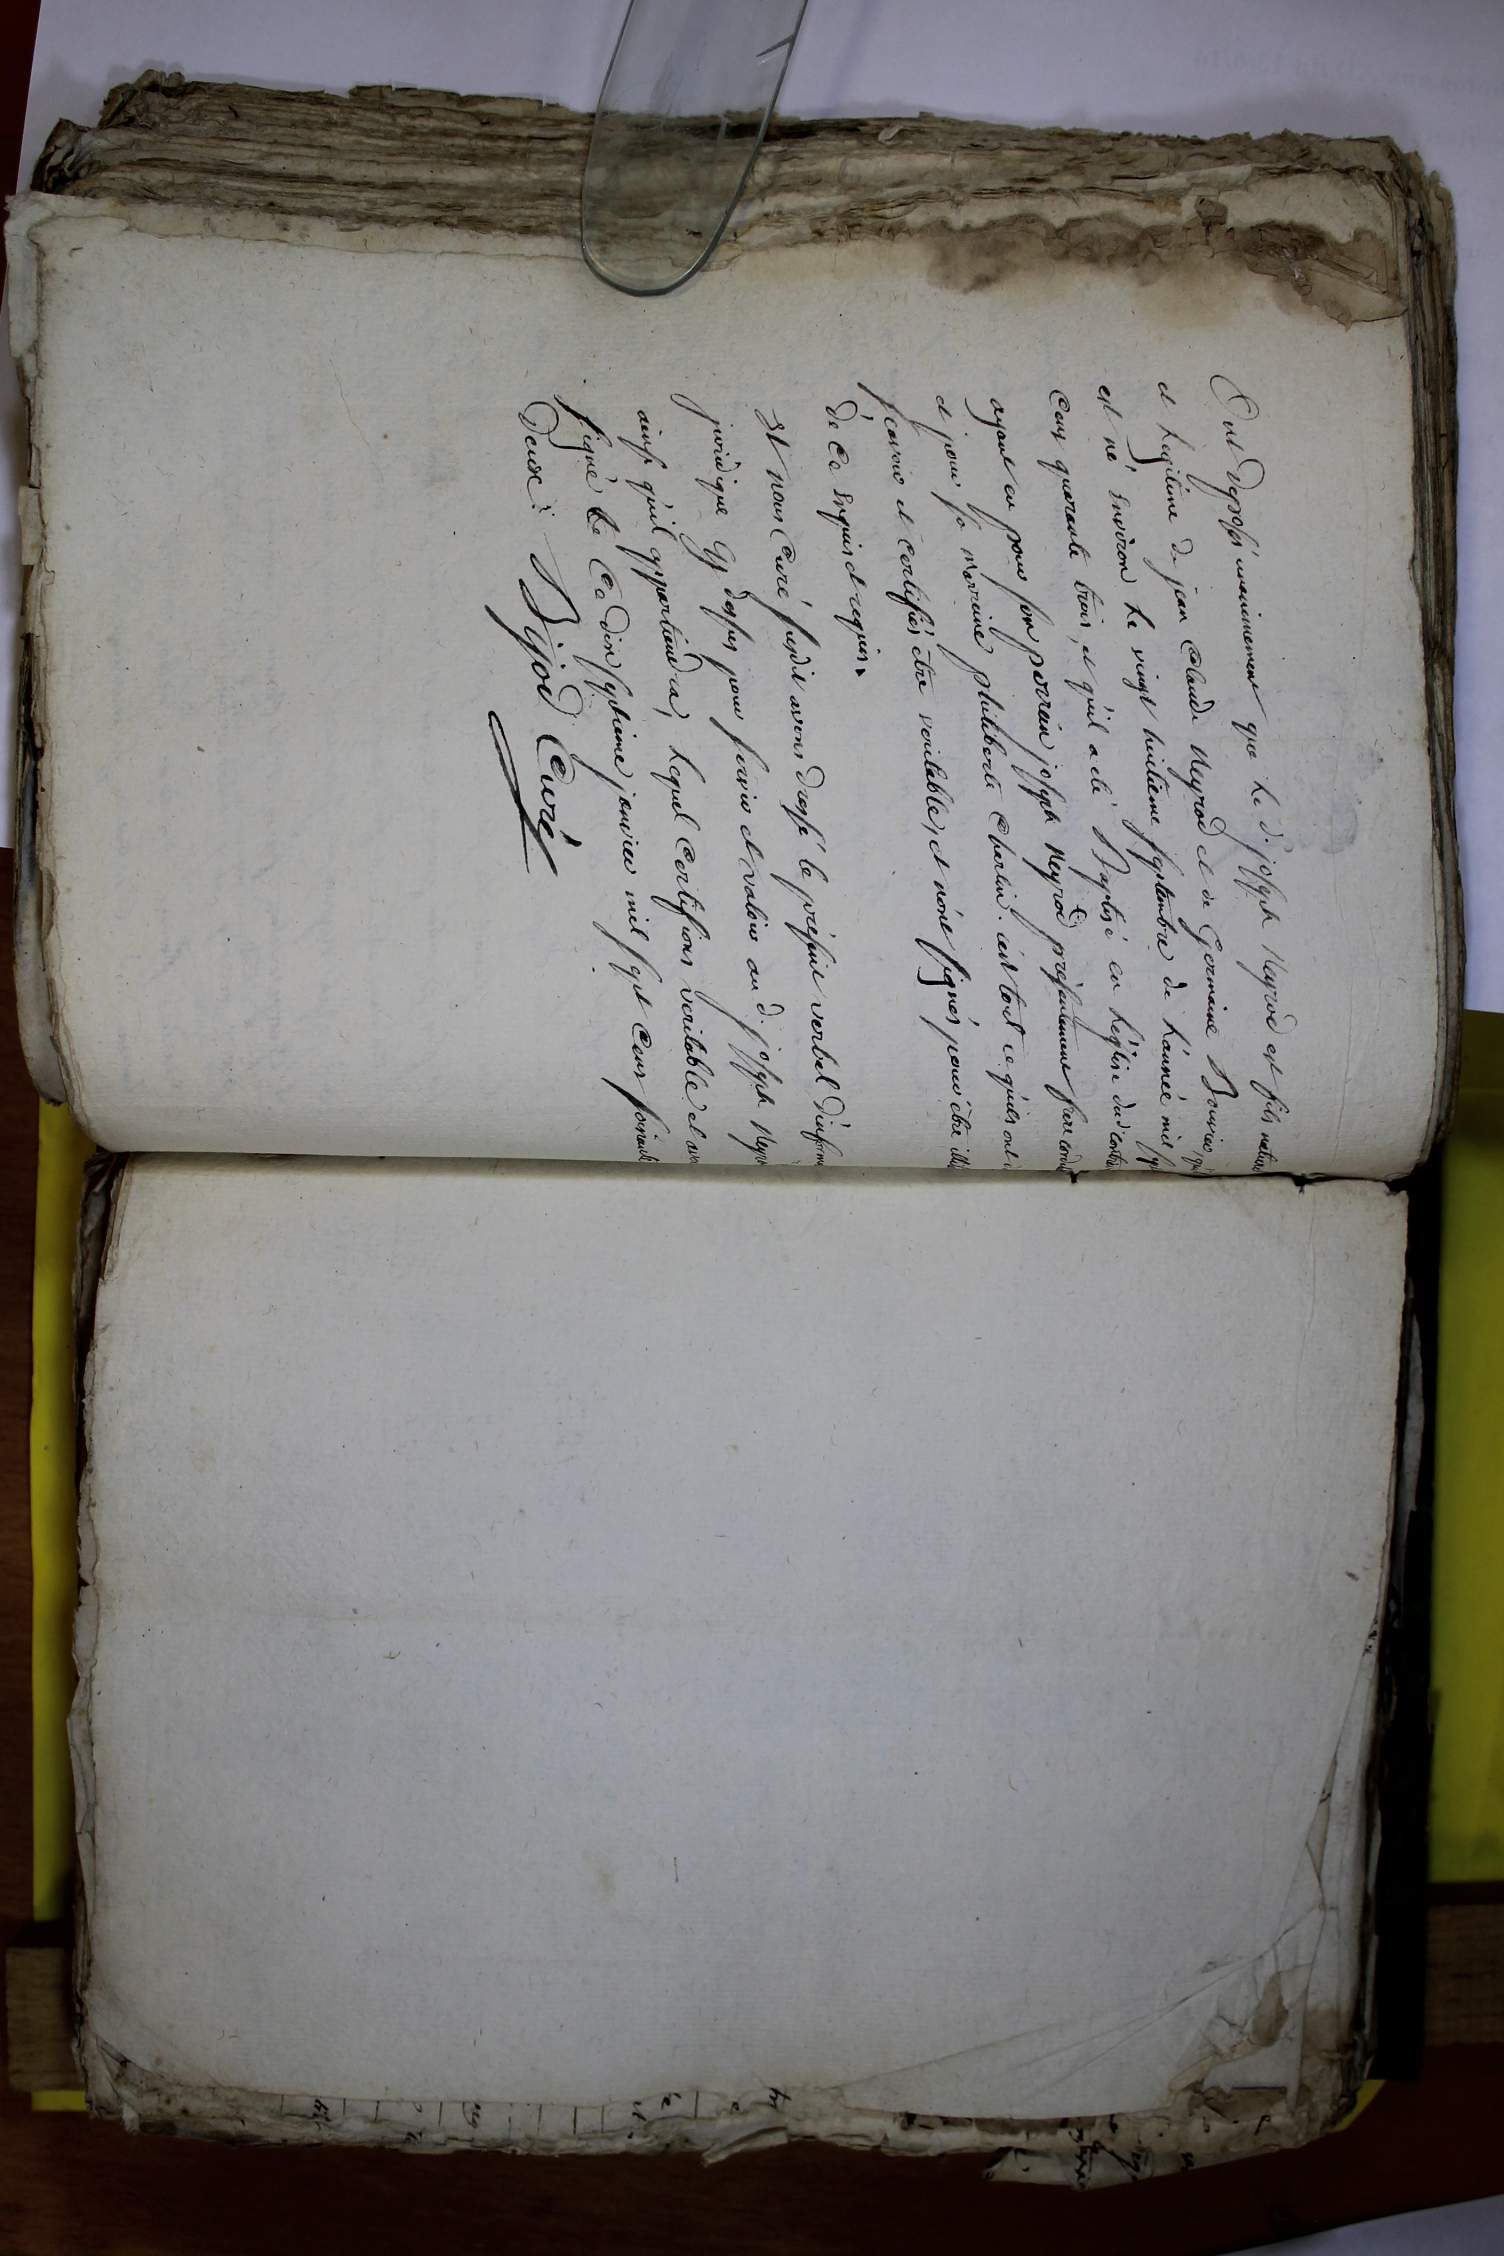 Ont deposés unanimement que Le d. joseph Neyrod est fils nature
et Legitime de jean Claude Neyrod et de Germaine Bouvier, qu
est né Environ Le vingt huitieme septembre de L'année mil sep
cens quarante trois, et qu'il a été Baptisé en L'eglise dud. contr
ayant eu pour son parrain joseph Neyrod presentement
et pour sa marraine philiberte Cherlin. c'est tout ce qu'ils ont
sçavoir et certifiés être veritable, et n'ont signés pour être illi
de ce Enquis et requis.
Et nous Curé susdit avons dressé le présent verbal d'inform
juridique cy dessus pour servir et valoir au d. joseph Neyr
ainsi qu'il appartiendra, Lequel certifions veritable et avo
signé Le Ce dix septieme janvier mil sept cens soixante
Deux. Bijod Curé